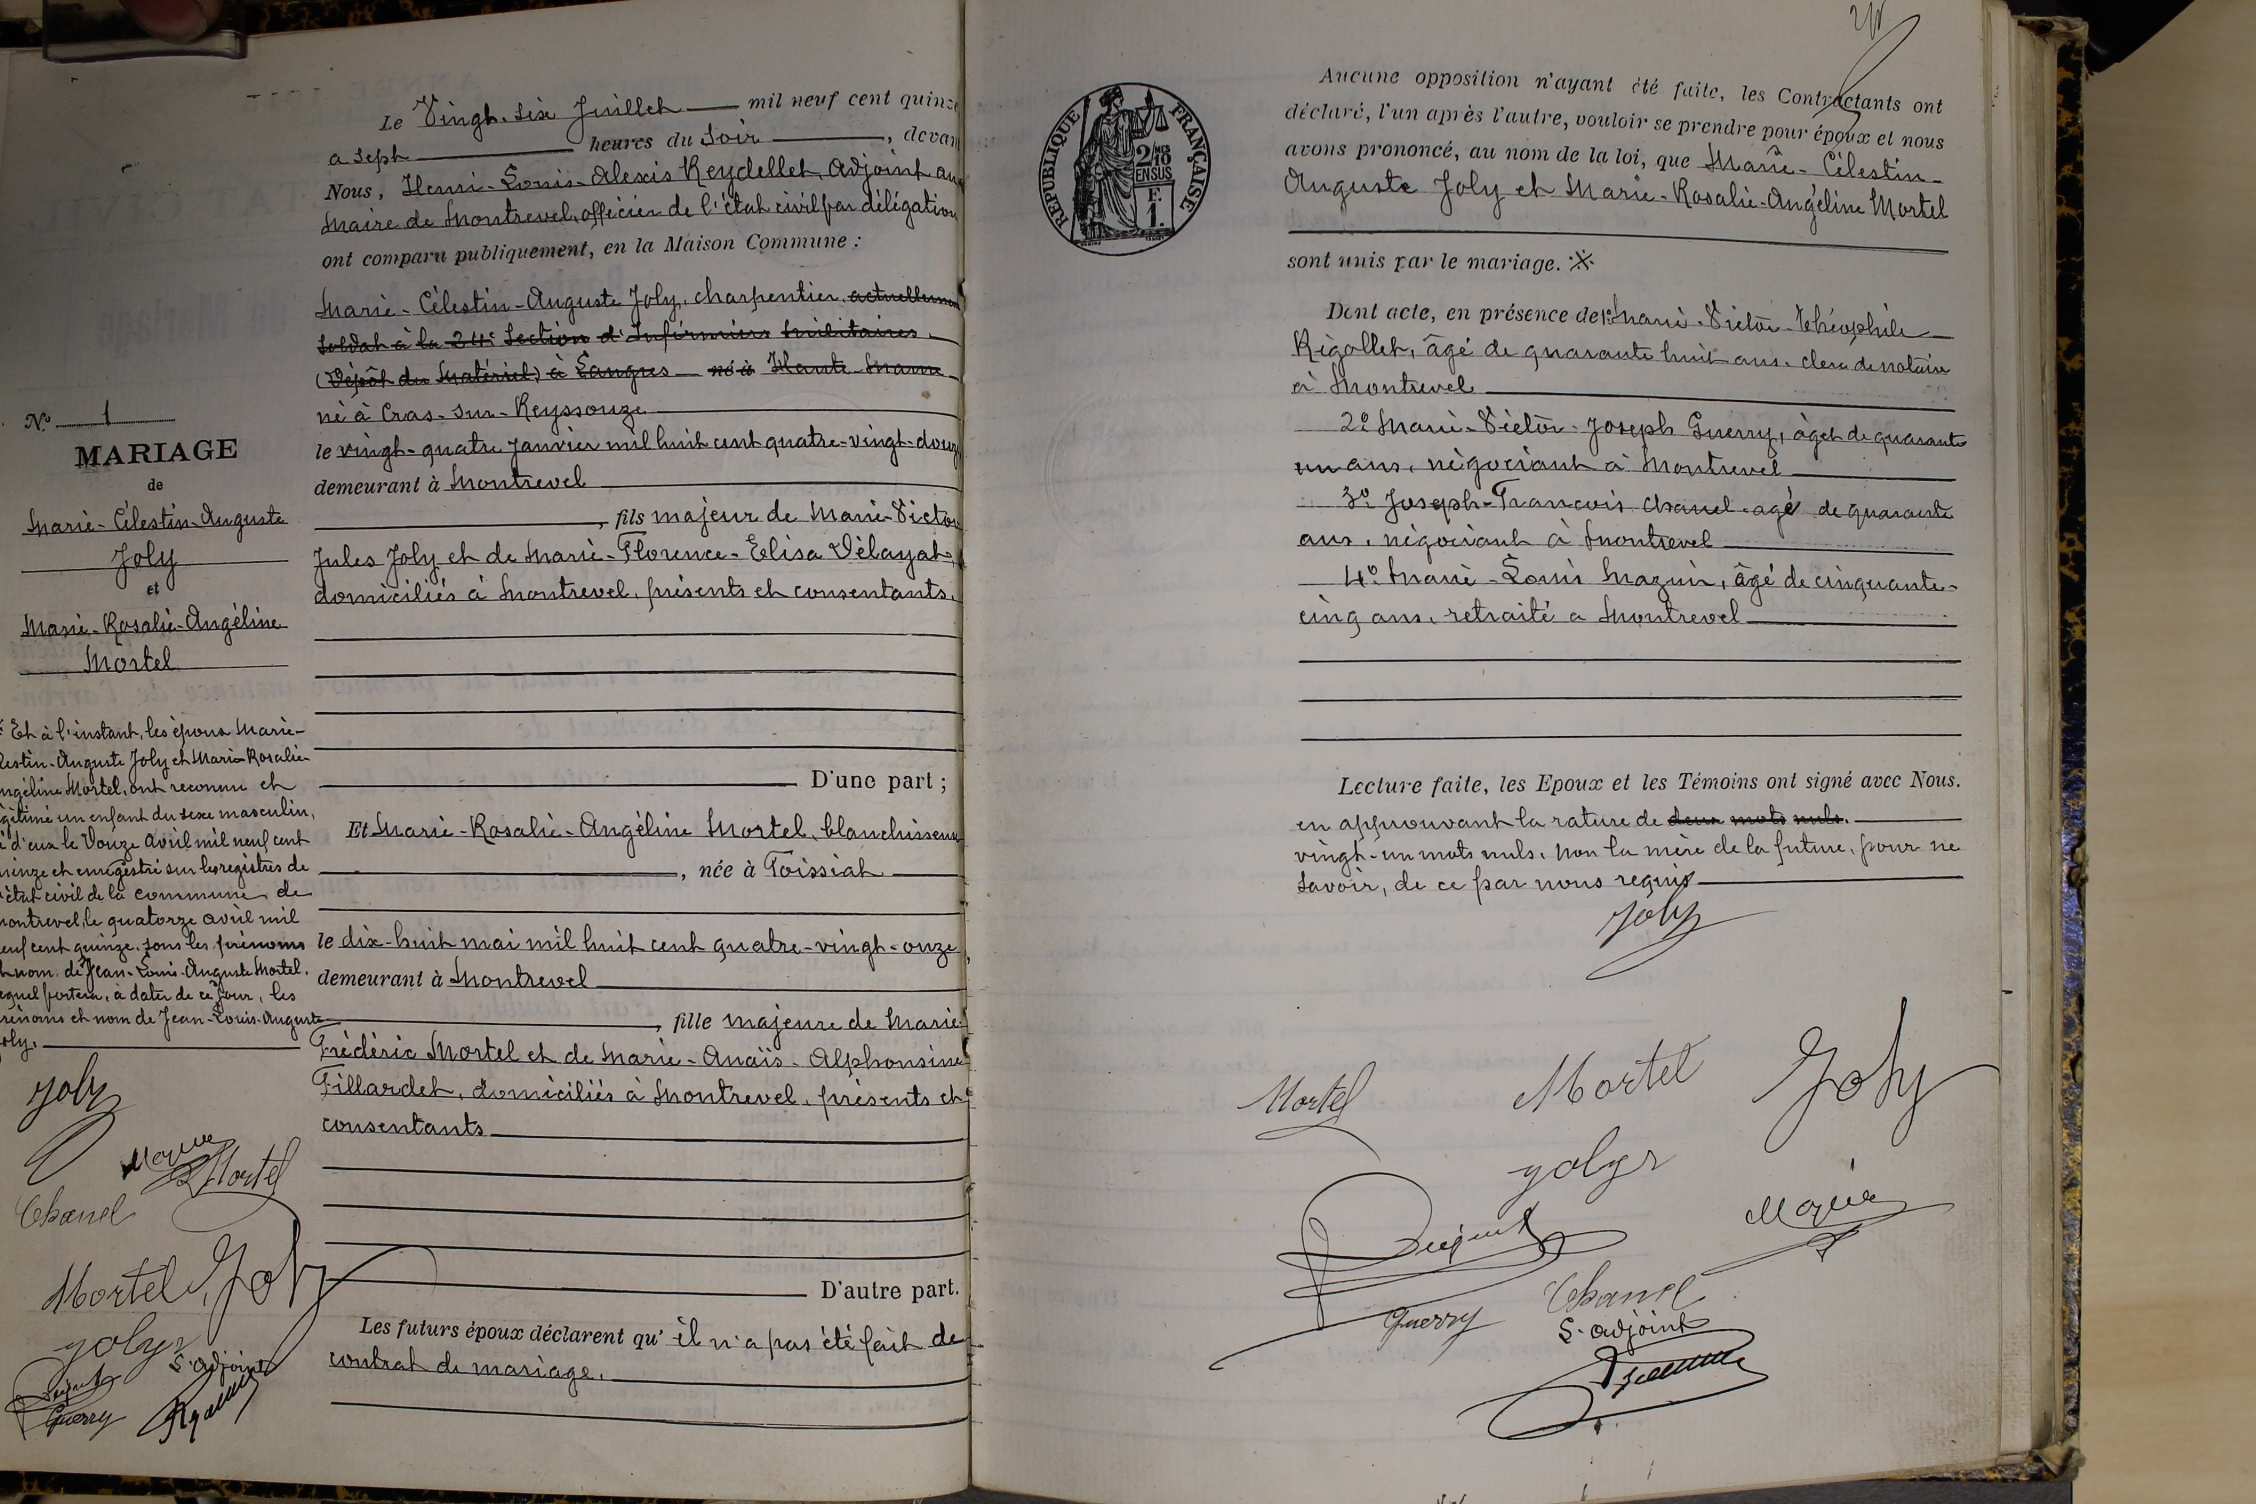 Le Vingt-six Juillet mil neuf cent quinze
a sept heures du soir, devan
Nous, Henri-Louis-Alexis Reydellet, Adjoint au
Maire de Montrevel, officier de l'état civil par délégation
ont comparu publiquement, en la Maison Commune :
Marie-Célestin-Auguste Joly, charpentier, actuellement
soldat à la 24e Section d'Infirmiers militaires
(Dépôt du Matériel) à Langres né à Haute-Marne
né à Cras-sur-Reyssouze
le vingt-quatre janvier mil huit cent quatre-vingt-douze
demeurant à Montrevel
, fils majeur de Marie-Victor
Jules Joly et de Marie-Florence-Elisa Vélayat,
domiciliés à Montrevel, présents et consentants.
D'une part ;
Et Marie-Rosalie-Angéline Mortel, blanchisseuse
, née à Foissiat
le dix-huit mai mil huit cent quatre-vingt-onze,
demeurant à Montrevel
, fille majeure de Marie-
Frédéric Mortel et de Marie-Anaïs-Alphonsine
Fillardet, domiciliés à Montrevel, présents et
consentants
D'autre part.
Les futurs époux déclarent qu'il n'a pas été fait de
contrat de mariage.
No 1
MARIAGE
de
Marie-Célestin-Auguste
Joly
et
Marie-Rosalie-Angéline
Mortel
Et à l'instant, les époux Marie-
lestin-Auguste Joly et Marie-Rosalie-
ngéline Mortel, ont reconnu et
gitimé un enfant du sexe masculin,
é d'eux le Douze avril mil neuf cent
uinze et enregistré sur les registres de
'état civil de la commune de
ontrevel, le quatorze avril mil
euf cent quinze, sous les prénoms
t nom de Jean-Louis-Auguste Mortel,
equel portera, à dater de ce jour, les
rénoms et nom de Jean-Louis-Auguste
oly.
Joly
Mazuir
Mortel
Chanel
Mortel
Joly
Joly
S. adjoint
Guerry
RÉPUBLIQUE FRANÇAISE
2/10
EN SUS
F.
1.
Aucune opposition n'ayant été faite, les Contractants ont
déclaré, l'un après l'autre, vouloir se prendre pour époux et nous
avons prononcé, au nom de la loi, que Marie-Célestin-
Auguste Joly et Marie-Rosalie-Angéline Mortel
sont unis par le mariage.
Dont acte, en présence de 1o Marie-Victor-Théophile
Rigollet, âgé de quarante huit ans, clerc de notaire
à Montrevel
2o Marie-Victor-Joseph Guerry, âget de quarante
un ans, négociant à Montrevel
3o Joseph-François Chanel agé de quarante
ans, négociant à Montrevel
4o Marie-Louis Mazuir, âgé de cinquante-
cinq ans, retraité a Montrevel
Lecture faite, les Epoux et les Témoins ont signé avec Nous.
en approuvant la rature de deux mots nuls.
vingt-un mots nuls. Non la mère de la future, pour ne
savoir, de ce par nous requis
Joly
Mortel
Mortel
Joly
Joly
Mazuir
Guerry
Chanel
S. adjoint